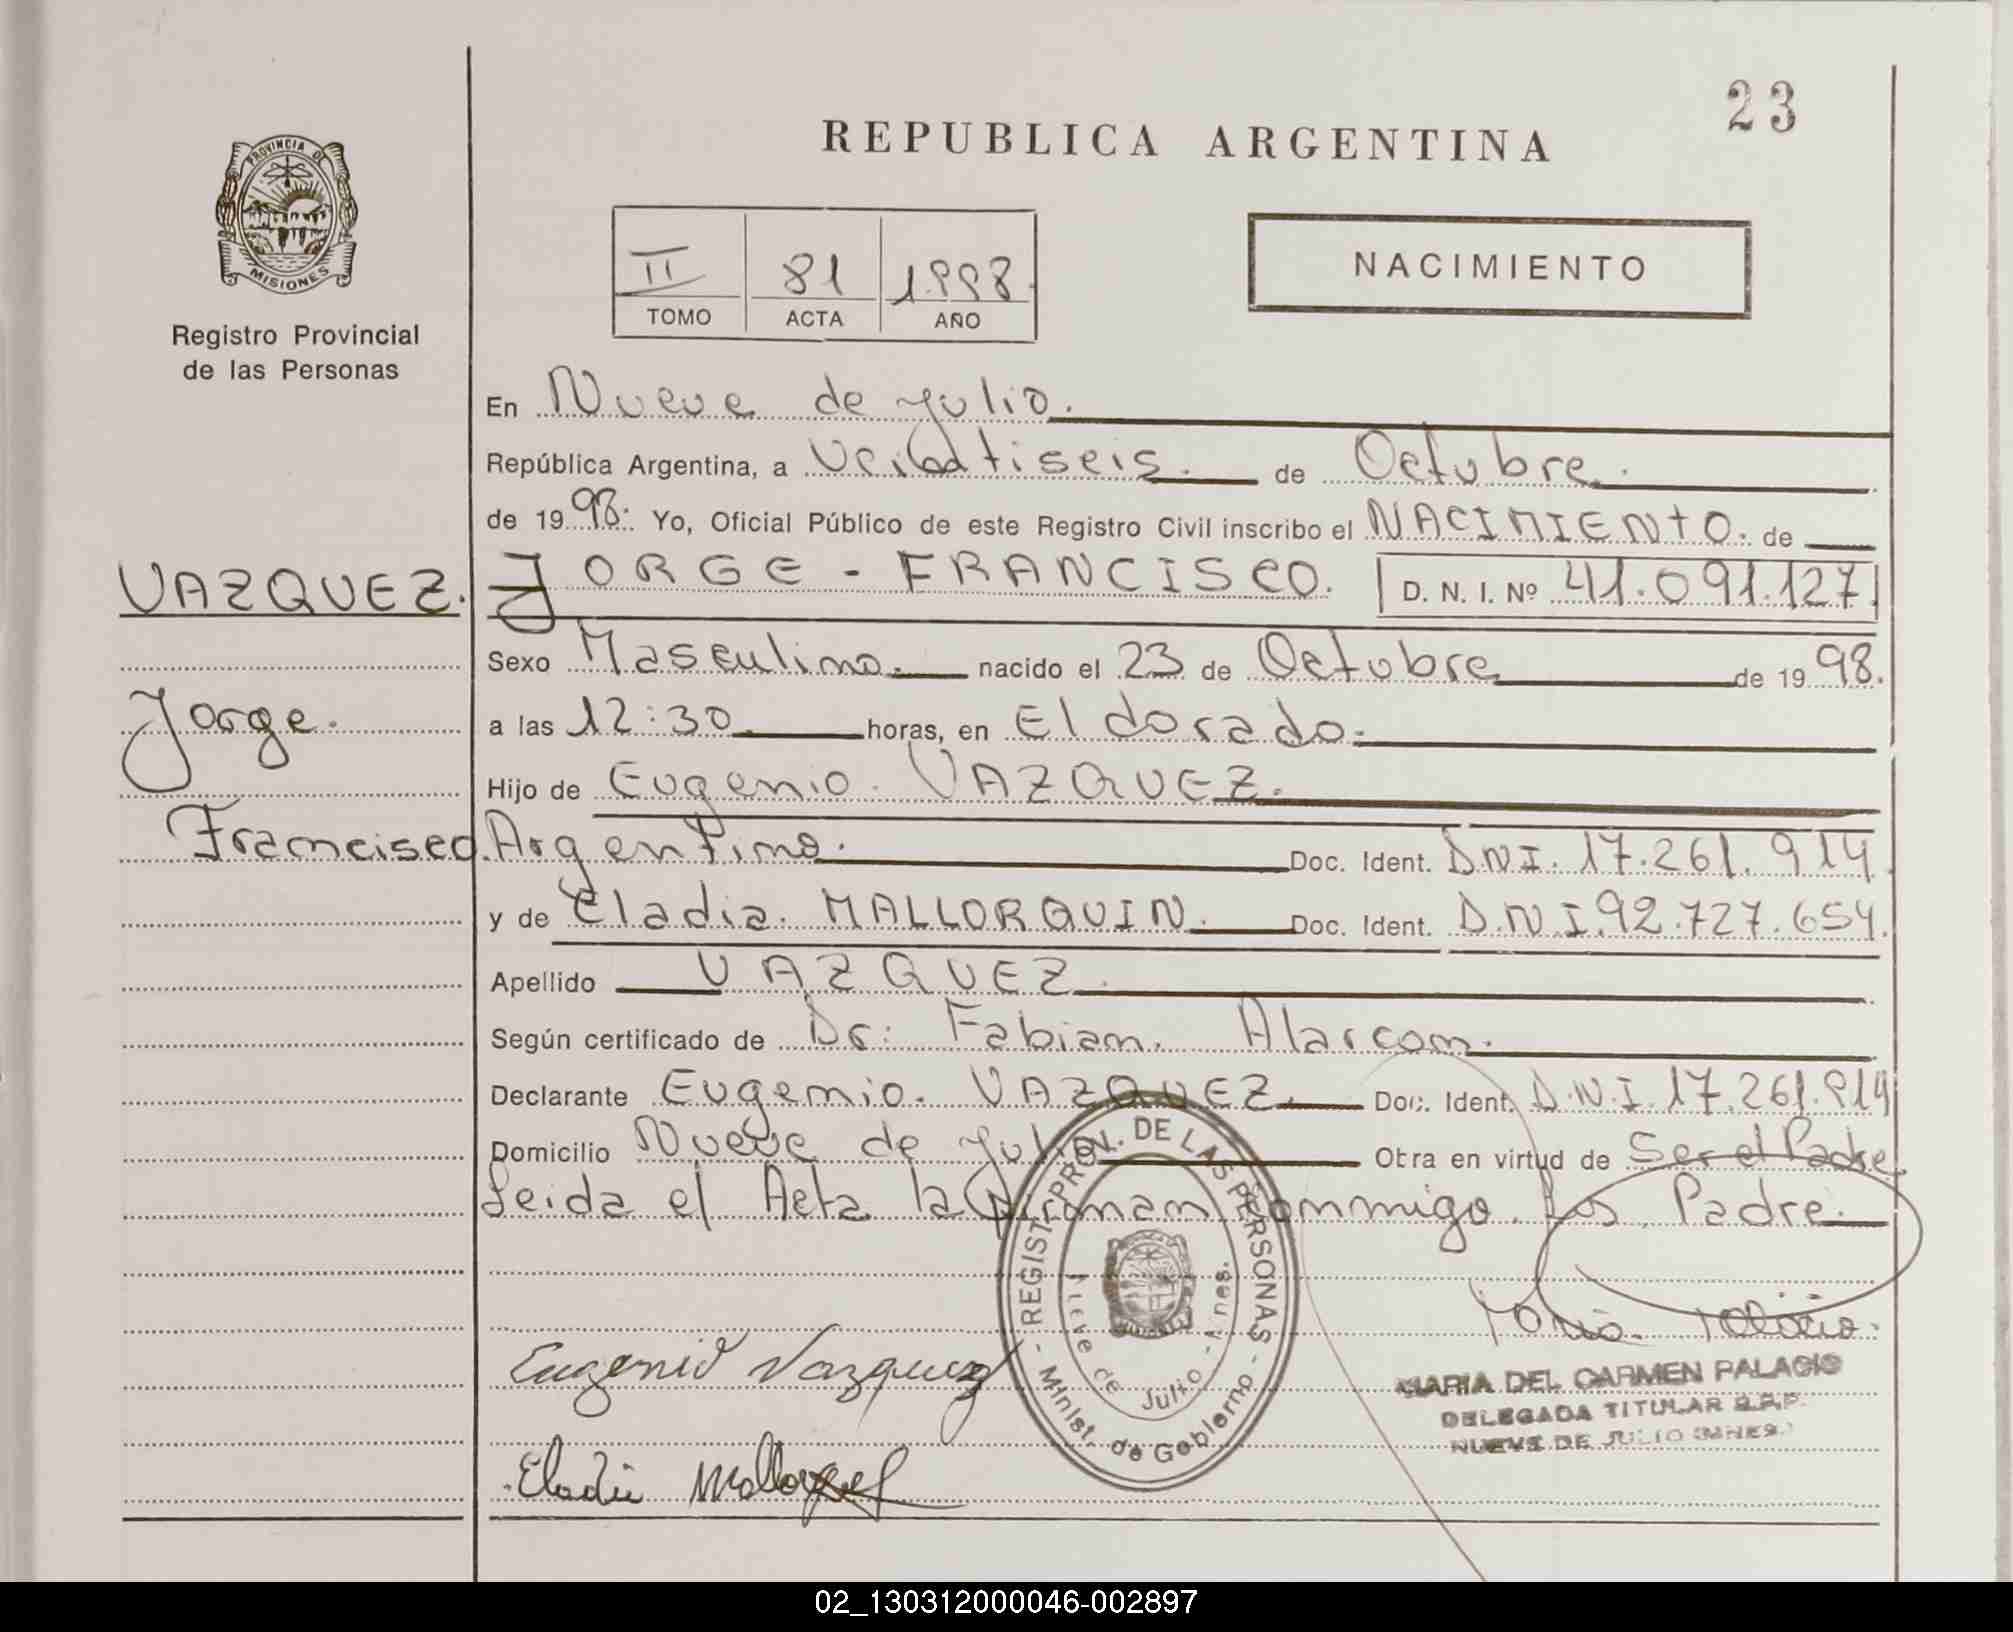 23
REPUBLICA ARGENTINA
PROVINCIA DE
MISIONES
Registro Provincial
de las Personas
II 81 1.998.
TOMO ACTA AÑO
NACIMIENTO
En Nueve de Julio.
República Argentina, a Veintiseis. de Octubre.
de 19 98. Yo, Oficial Público de este Registro Civil inscribo el NACIMIENTO. de
VAZQUEZ. JORGE - FRANCISCO. D. N. I. Nº 41.091.127.
Sexo Masculino. nacido el 23 de Octubre de 19 98.
Jorge. a las 12:30 horas, en El dorado.
Hijo de Eugenio. VAZQUEZ.
Francisco. Argentino. Doc. Ident. D.N.I. 17.261.914
y de Eladia. MALLORQUIN. Doc. Ident. D.N.I. 92.727.654.
Apellido VAZQUEZ.
Según certificado de Dr: Fabian. Alarcon.
Declarante Eugenio. VAZQUEZ. Doc. Ident. D.N.I. 17.261.914
Domicilio Nueve de Julio Obra en virtud de Ser el Padre
Leida el Acta la firman conmigo. Los Padre.
REGIST. PROV. DE LAS PERSONAS - Minist. de Gobierno -
Nueve de Julio - Mnes.
Eugenio Vazquez
MARIA DEL CARMEN PALACIO
DELEGADA TITULAR R.P.P.
NUEVE DE JULIO (MNES.)
Eladia
02_130312000046-002897